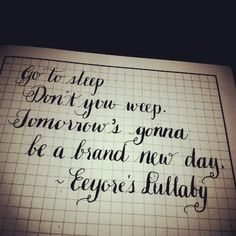 Go to sleep
Don't you weep.
Tomorrow's gonna
be a brand new day.
~ Eeyore's Lullaby